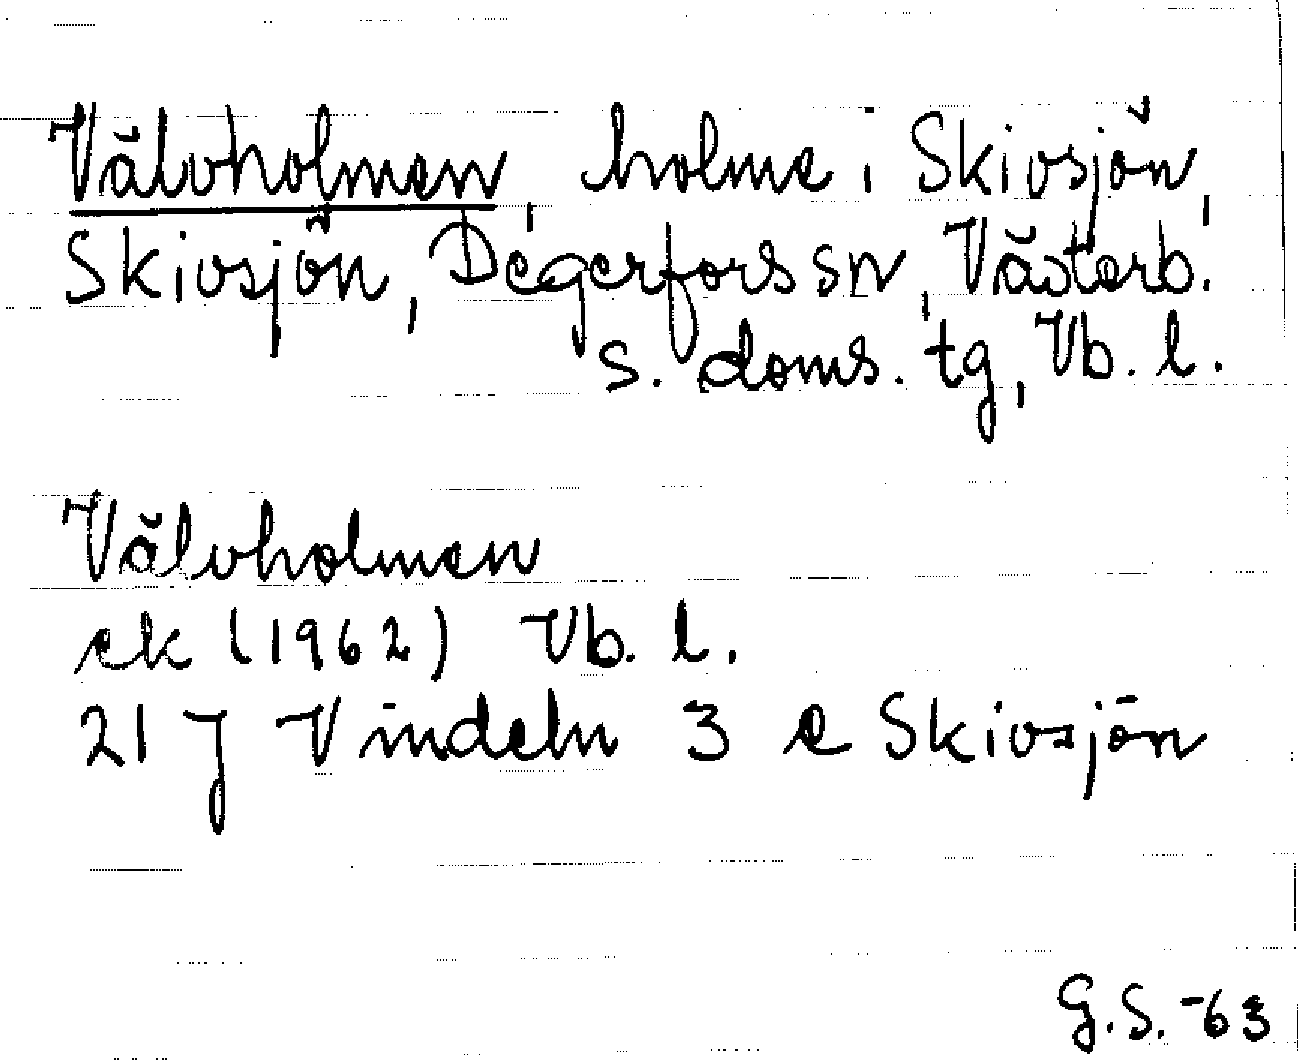 Välvholmen, holme i Skivsjön,
Skivsjön, Degerfors sn, Västerb.
s. doms. tg, Vb. l.
Välvholmen
ek (1962) Vb. l.
21 J Vindeln 3 e Skivsjön
G.S. -63